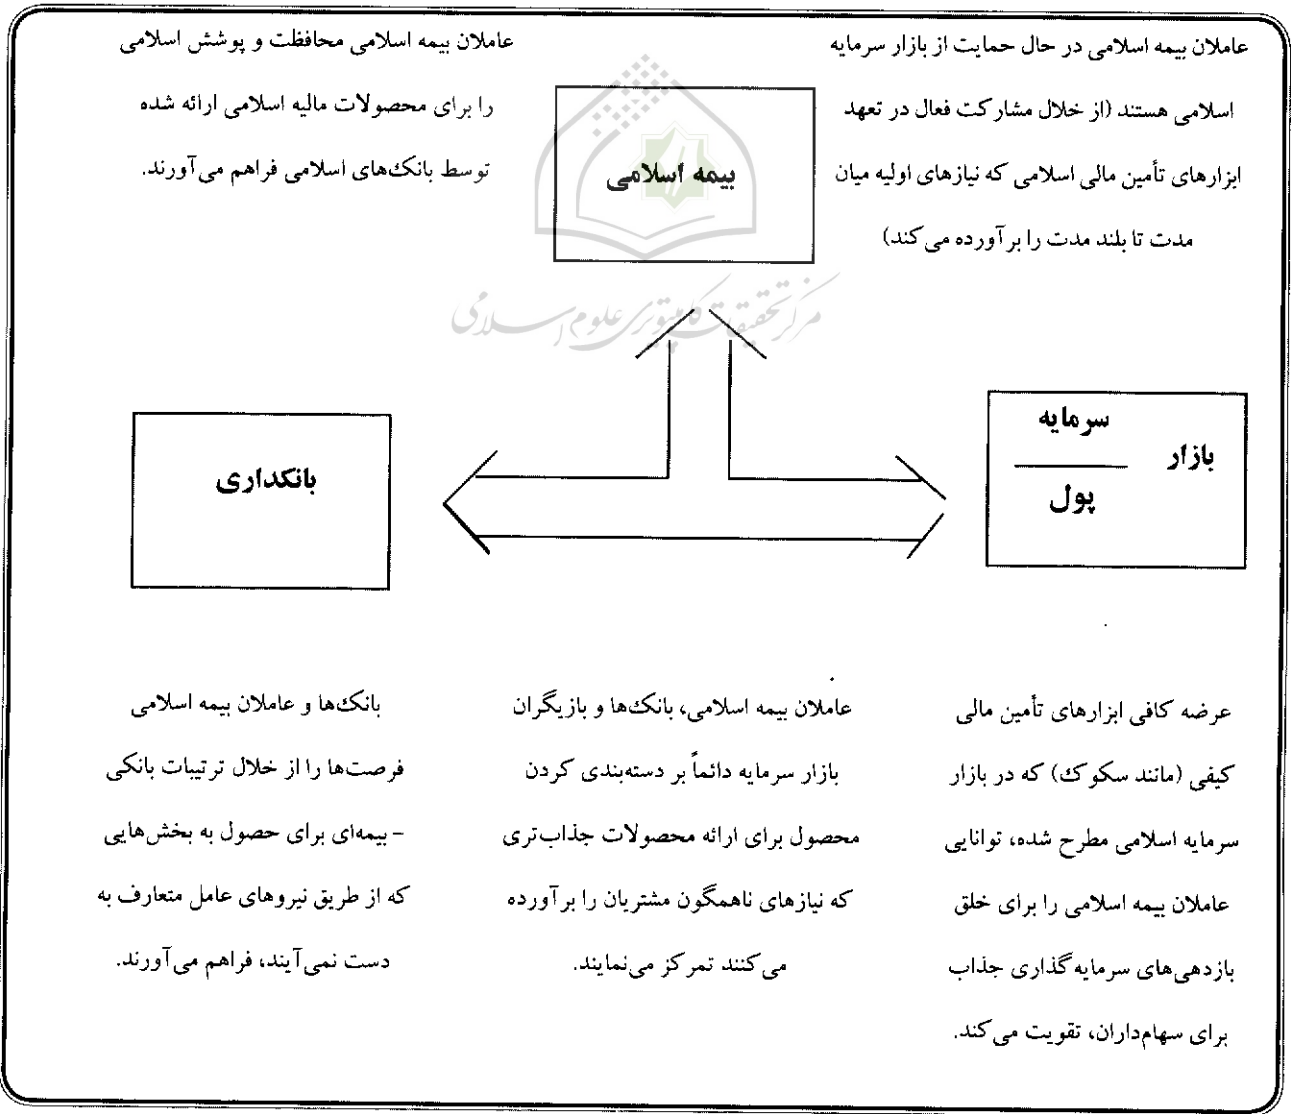 عاملان بیمه اسلامی در حال حمایت از بازار سرمایه
اسلامی هستند (از خلال مشارکت فعال در تعهد
ابزارهای تأمین مالی اسلامی که نیازهای اولیه میان
مدت تا بلند مدت را برآورده می‌کند)
بیمه اسلامی
عاملان بیمه اسلامی محافظت و پوشش اسلامی
را برای محصولات مالیه اسلامی ارائه شده
توسط بانک‌های اسلامی فراهم می‌آورند.
مرکز تحقیقات کامپیوتری علوم اسلامی
بازار
سرمایه
پول
بانکداری
عرضه کافی ابزارهای تأمین مالی
کیفی (مانند سکوک) که در بازار
سرمایه اسلامی مطرح شده، توانایی
عاملان بیمه اسلامی را برای خلق
بازدهی‌های سرمایه‌گذاری جذاب
برای سهام‌داران، تقویت می‌کند.
عاملان بیمه اسلامی، بانک‌ها و بازیگران
بازار سرمایه دائماً بر دسته‌بندی کردن
محصول برای ارائه محصولات جذاب‌تری
که نیازهای ناهمگون مشتریان را برآورده
می‌کنند تمرکز می‌نمایند.
بانک‌ها و عاملان بیمه اسلامی
فرصت‌ها را از خلال ترتیبات بانکی
– بیمه‌ای برای حصول به بخش‌هایی
که از طریق نیروهای عامل متعارف به
دست نمی‌آیند، فراهم می‌آورند.